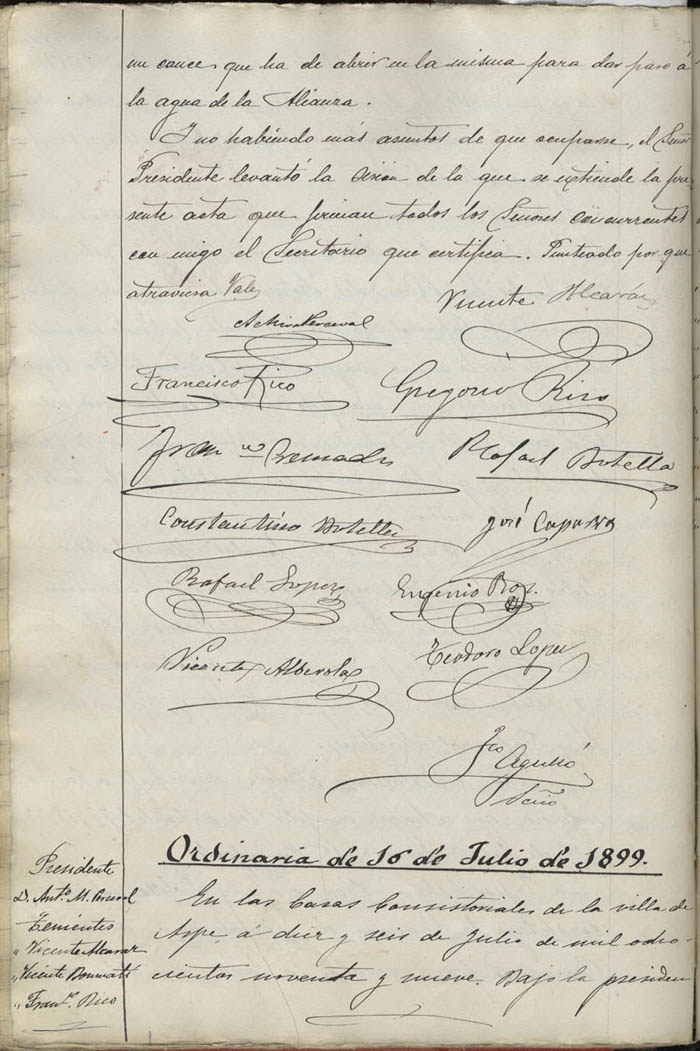 un cauce que ha de abrir en la misma para dar paso á
la agua de la Alianza.
Y no habiendo más asuntos de que ocuparse, el Señor
Presidente levantó la sesión de la que se extiende la pre
sente acta que firman todos los Señores concurrentes
con migo el Secretario que certifica. Punteado por que
atraviesa Vale
Vicente Alcaráz
Francisco Rico
Gregorio Rizo
Fran co Cremades
Rafael Botella
Constantino Botella
José Caparrós
Rafael Lopez
Eugenio
Vicente Alberola
Teodoro Lopez
Fco Agulló
Srio
Ordinaria de 16 de Julio de 1899.
Presidente
D. Anto. M.
Tenientes
" Vicente Alcaraz
" Vicente Bonmatí
" Franco. Rico
En las Casas Consistoriales de la villa de
Aspe á diez y seis de Julio de mil ocho
cientos noventa y nueve. Bajo la presiden